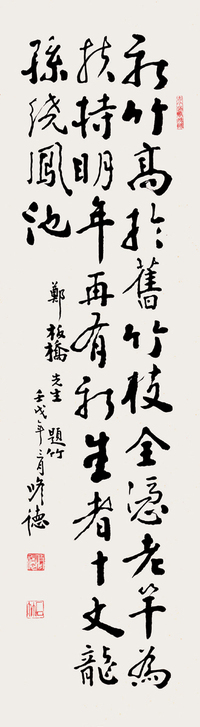 新竹高於舊竹枝全憑老竿為
扶持明年再有新生者十丈龍
孫繞鳳池
鄭板橋先生題竹
壬戌年育